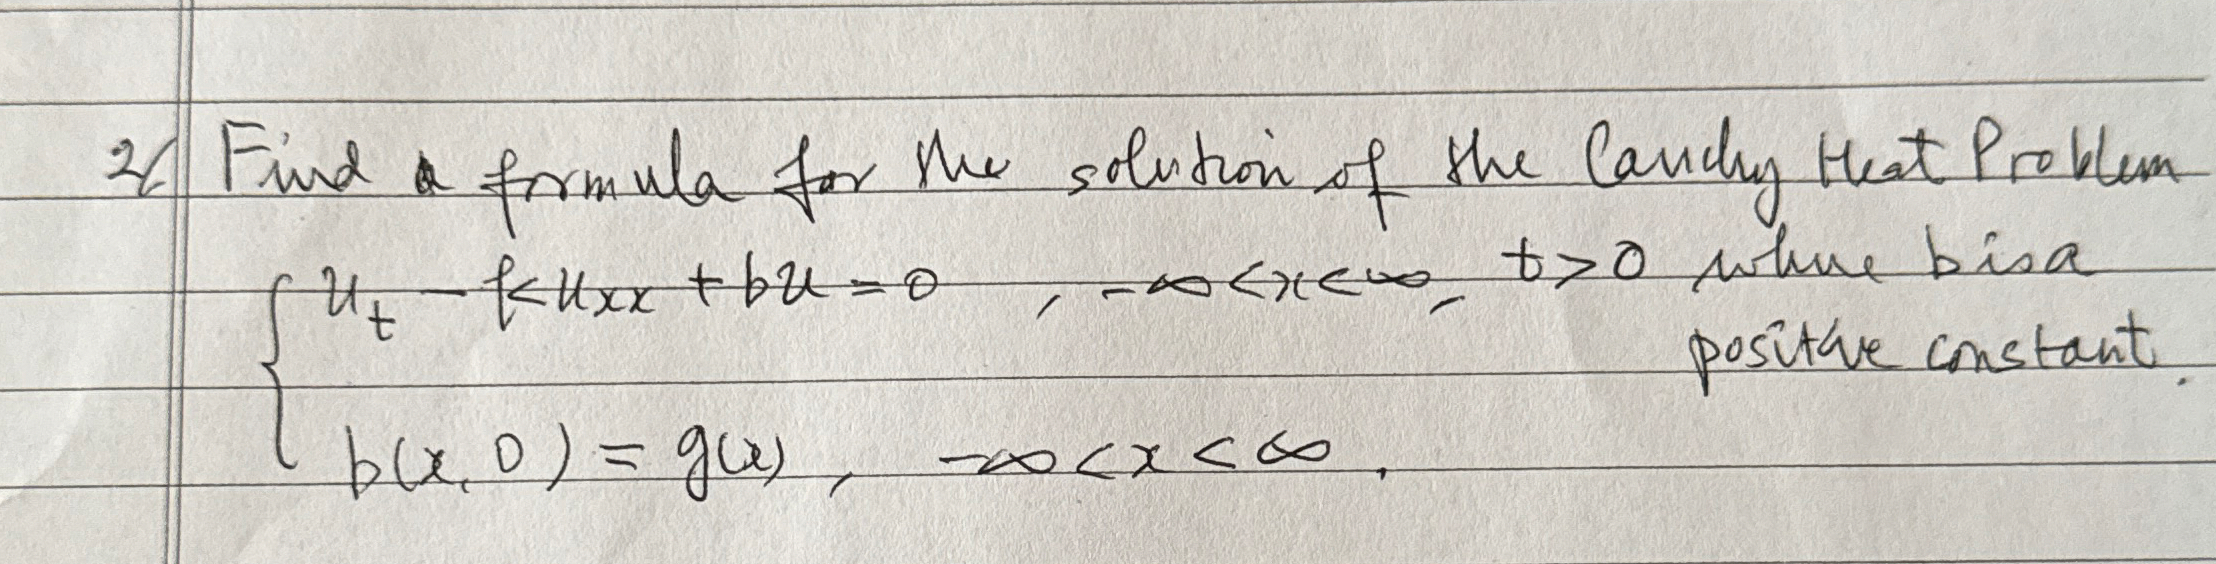 2/ Find a formula for the solution of the Cauchy Heat Problem
{ u_t - k u_xx + bu = 0 , -∞ < x < ∞, t > 0 where b is a
positive constant.
b(x, 0) = g(x), -∞ < x < ∞.